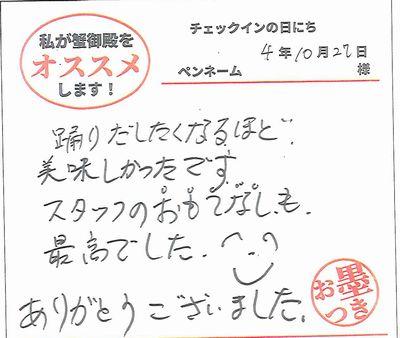 私が蟹御殿を
オススメ
します！
チェックインの日にち
4年10月27日
ペンネーム 様
踊りだしたくなるほど、
美味しかったです
スタッフのおもてなしも、
最高でした。
ありがとうございました。
お墨つき